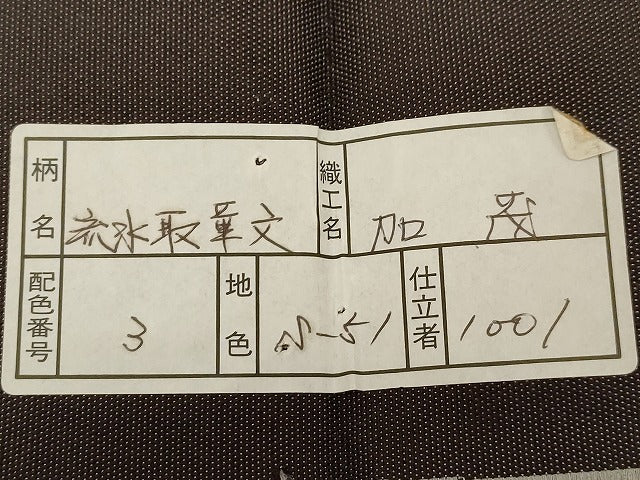 柄名 流水取華文 織工名 加茂
配色番号 3 地色 N-51 仕立者 1001